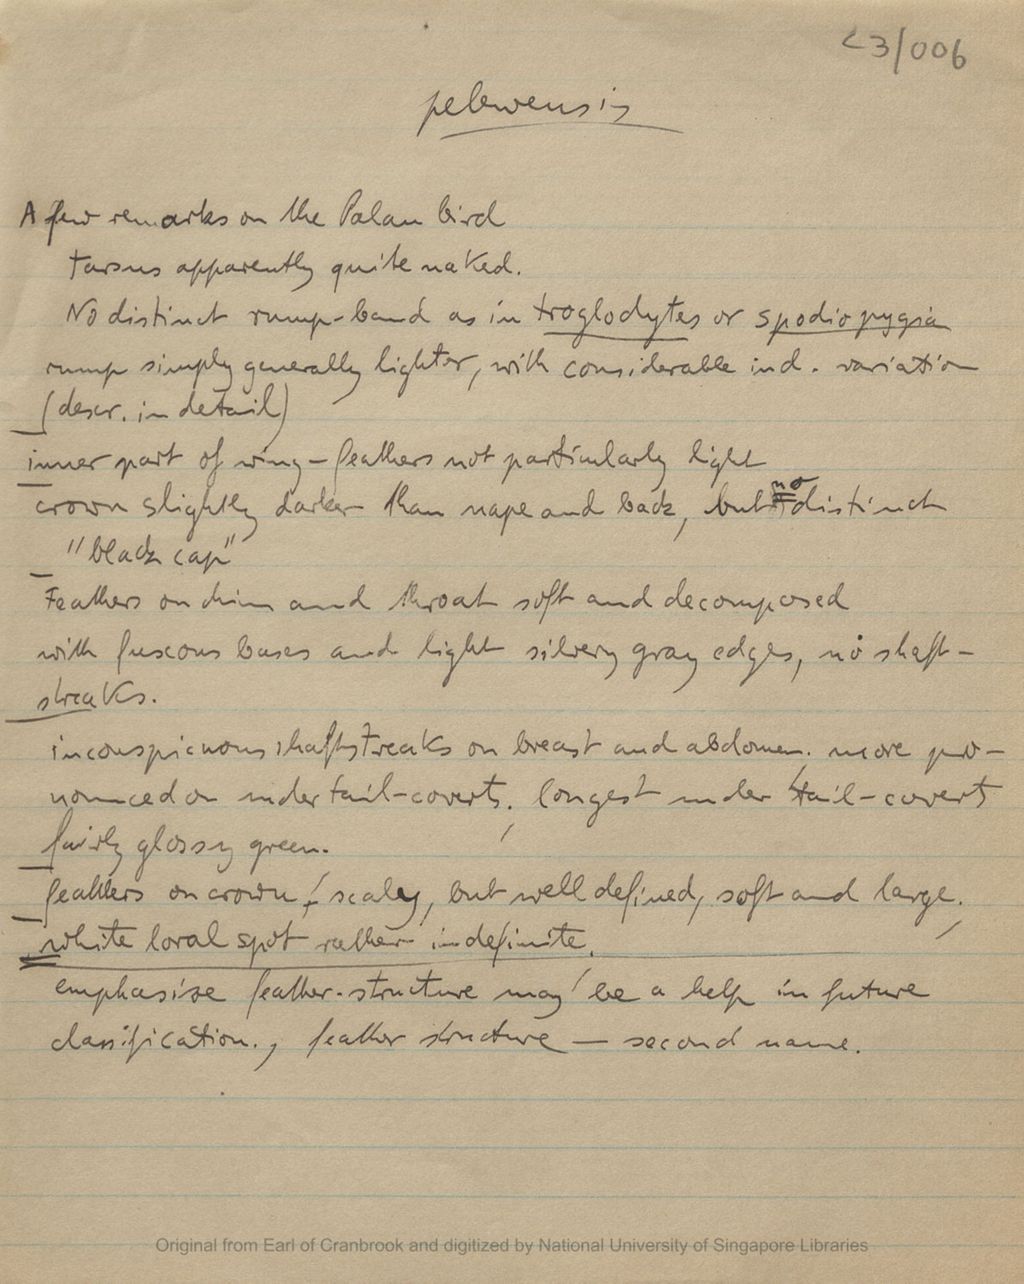 <3/006
pelewensis
A few remarks on the Palau bird
Tarsus apparently quite naked.
No distinct rump-band as in troglodytes or spodiopygia
rump simply generally lighter, with considerable ind. variation
(descr. in detail)
inner part of wing-feathers not particularly light
crown slightly darker than nape and back, but no distinct
"black cap"
Feathers on chin and throat soft and decomposed
with fuscous bases and light silvery gray edges, no shaft-
streaks.
inconspicuous shaftstreaks on breast and abdomen, more pro-
nounced on under tail-coverts, longest under tail-coverts
fairly glossy green.
feathers on crown scaley, but well defined, soft and large.
white loral spot rather indefinite.
emphasise feather-structure may be a help in future
classification., feather structure — second name.
Original from Earl of Cranbrook and digitized by National University of Singapore Libraries